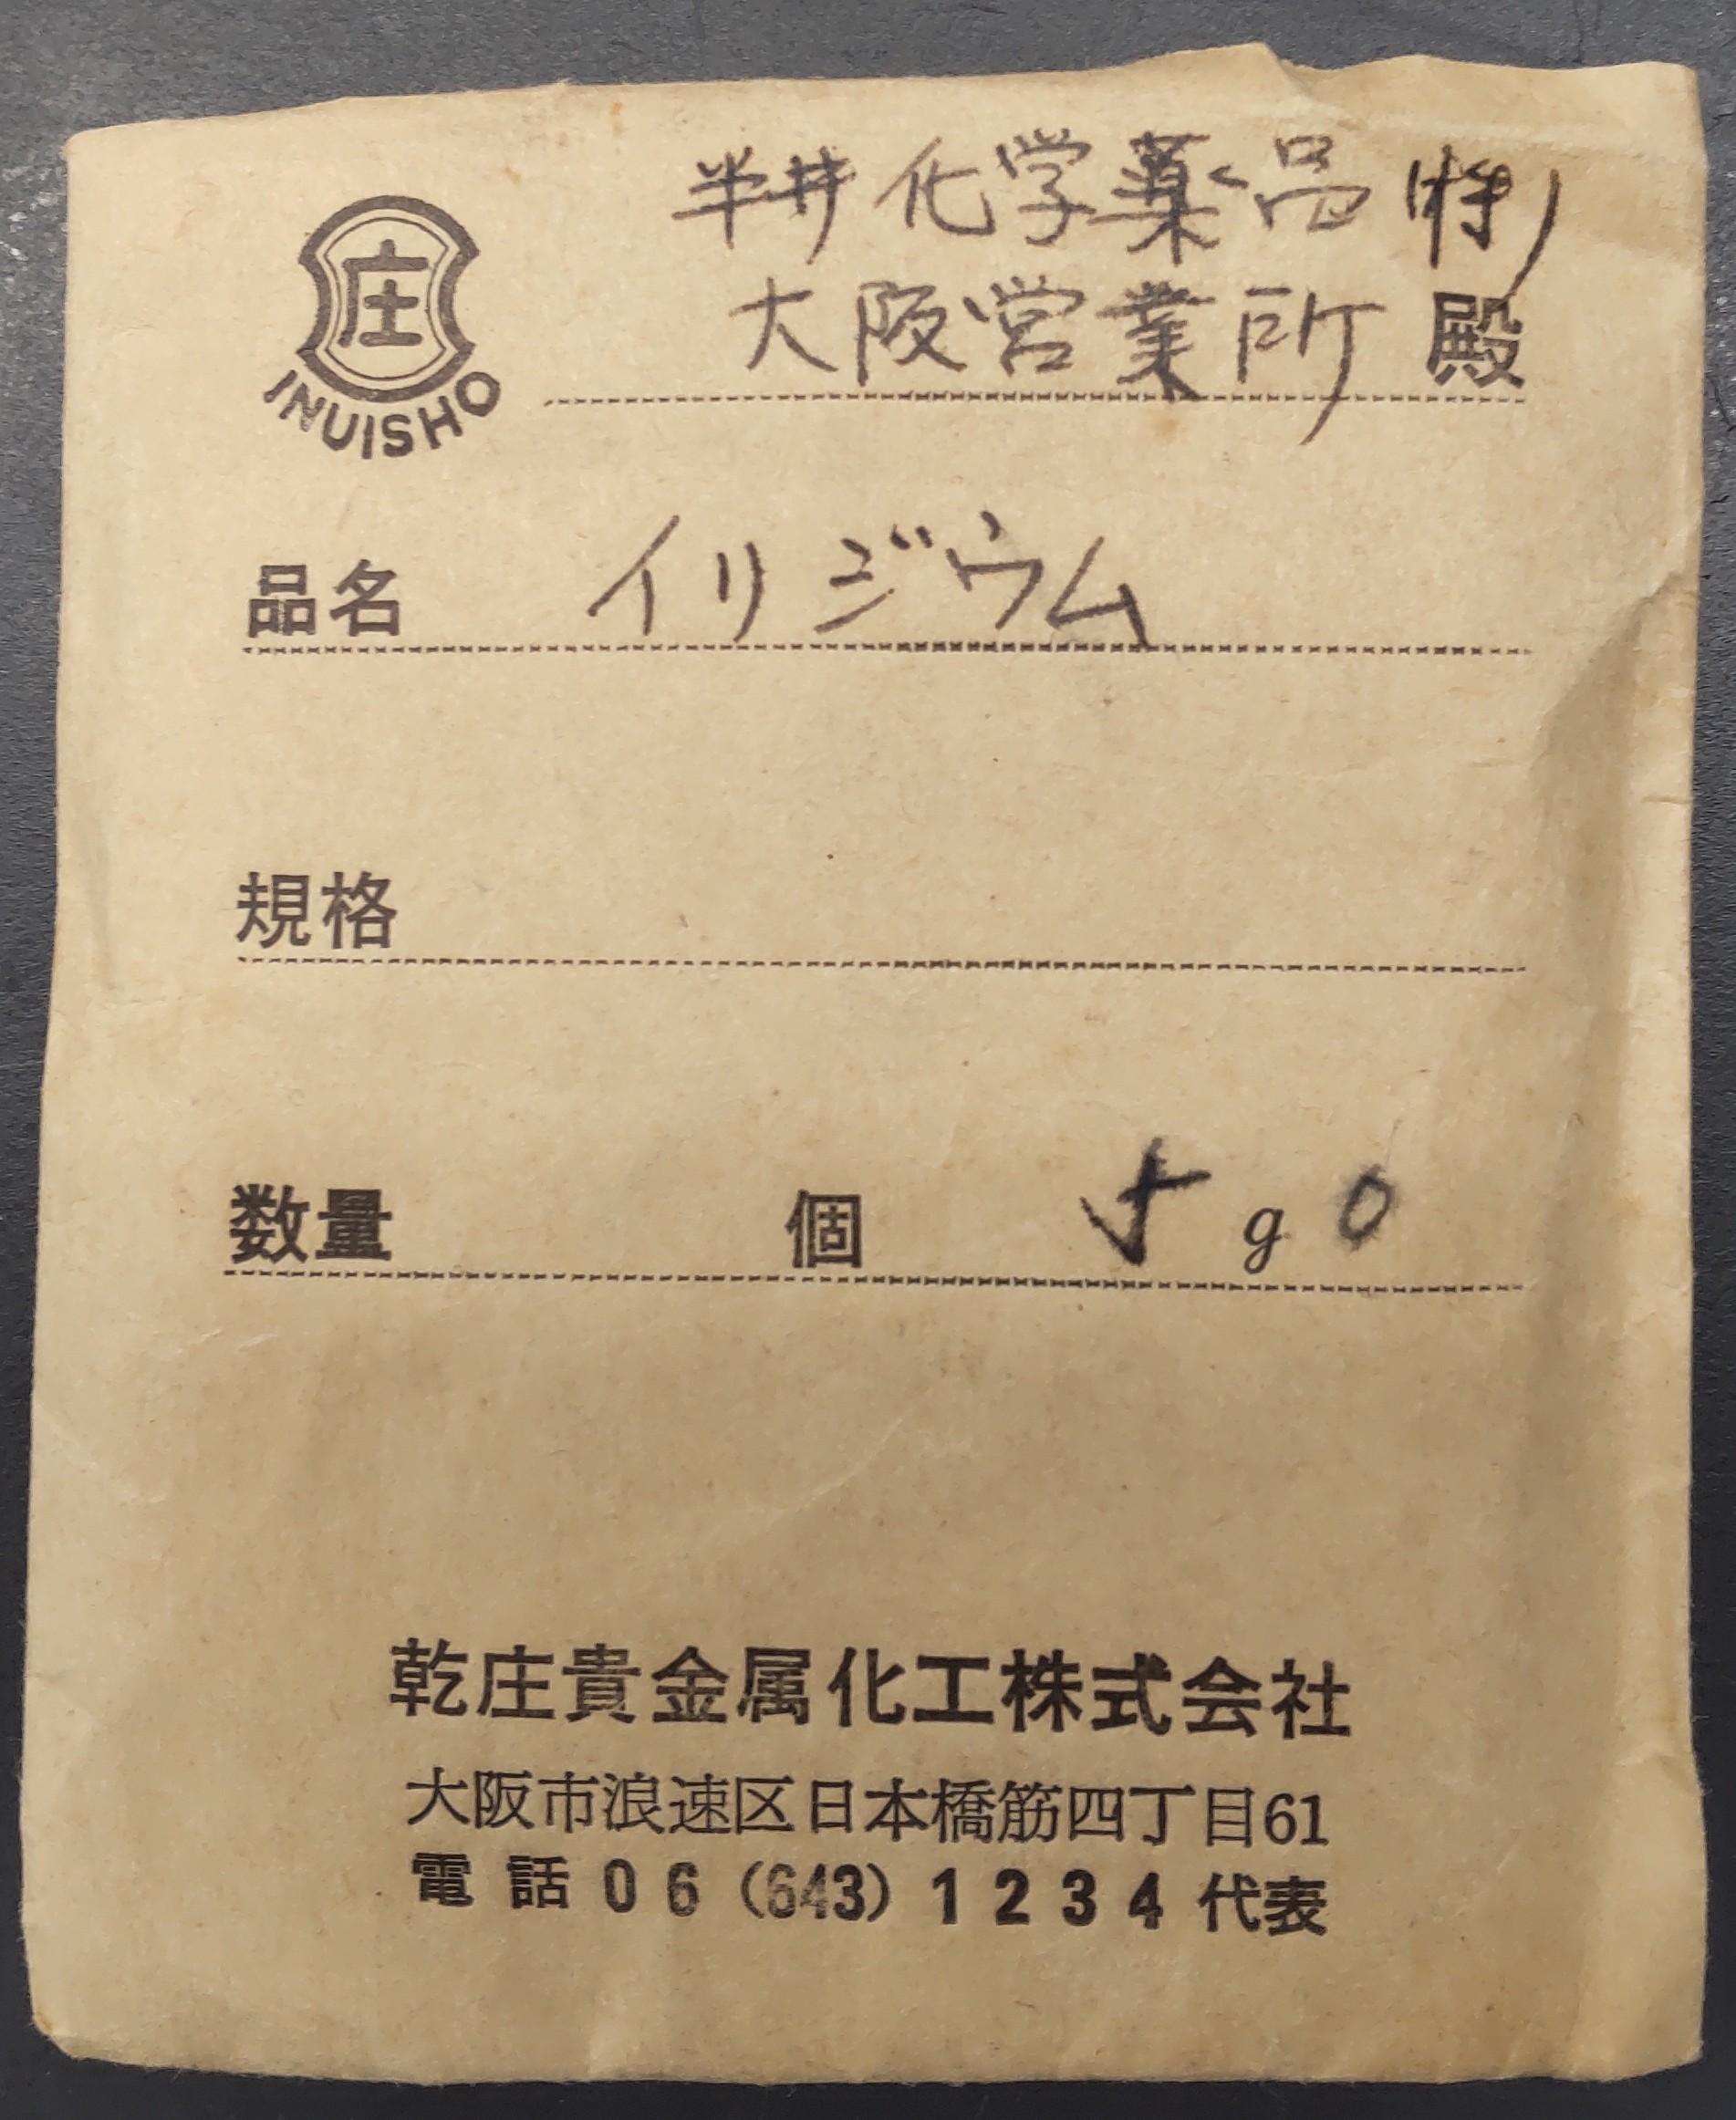 半井化学薬品(株)
大阪営業所 殿
庄
INUISHO
品名 イリジウム
規格
数量 個 5 g 0
乾庄貴金属化工株式会社
大阪市浪速区日本橋筋四丁目61
電話06(643)1234代表